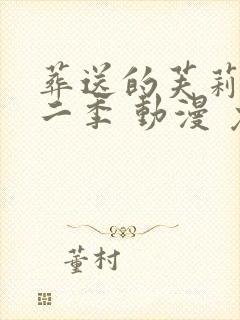 葬送的芙莉
二季 動漫
董村